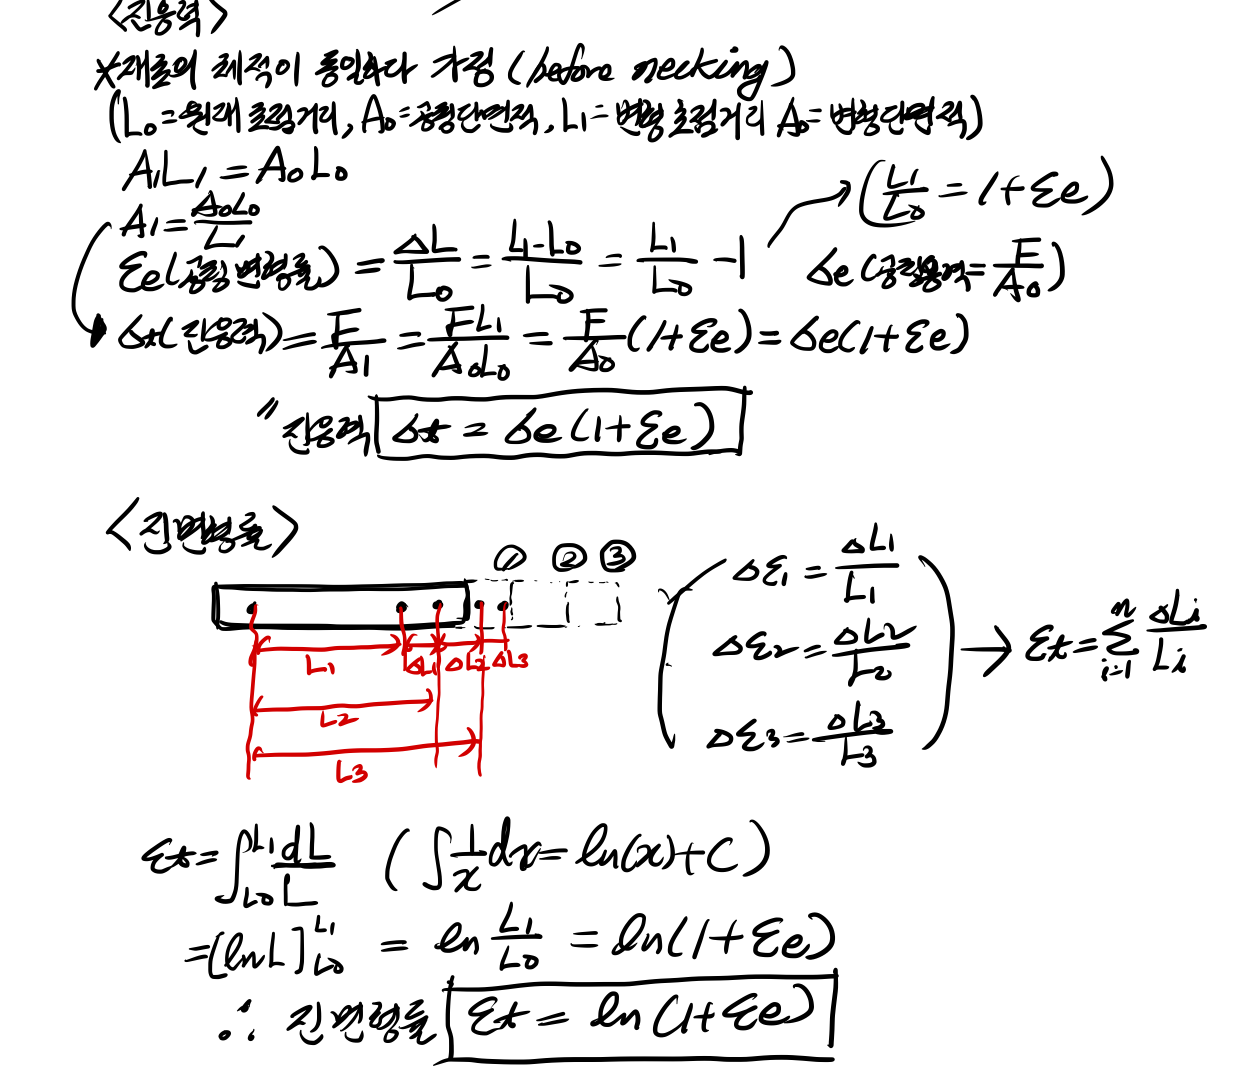 <진응력>
*재료의 체적이 동일하다 가정 (before necking)
(L0=원래 표점거리, A0=공칭단면적, L1=변형 표점거리 A0=변형단면적)
A1L1=A0L0
A1=A0L0/L1
(L1/L0=1+εe)
εe(공칭변형률)=ΔL/L0=(L1-L0)/L0=L1/L0-1
σe(공칭응력=F/A0)
σt(진응력)=F/A1=FL1/A0L0=F/A0(1+εe)=σe(1+εe)
" 진응력 σt=σe(1+εe)
<진변형률>
① ② ③
L1 ΔL1 ΔL2 ΔL3
L2
L3
Δε1=ΔL1/L1
Δε2=ΔL2/L2
Δε3=ΔL3/L3
→ εt=∑_{i=1}^{n} ΔLi/Li
εt=∫_{L0}^{L1} dL/L (∫1/x dx=ln(x)+C)
=[lnL]_{L0}^{L1} = ln L1/L0 = ln(1+εe)
∴ 진변형률 εt=ln(1+εe)